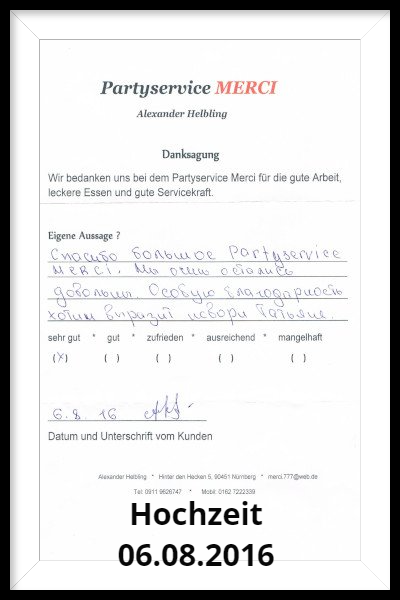 Partyservice MERCI
Alexander Helbling
Danksagung
Wir bedanken uns bei dem Partyservice Merci für die gute Arbeit,
leckere Essen und gute Servicekraft.
Eigene Aussage ?
Спасибо большое Partyservice
Merci. Мы очень остались
довольны. Особую благодарность
хотим выразит Татьяне.
sehr gut * gut * zufrieden * ausreichend * mangelhaft
(X) ( ) ( ) ( ) ( )
6.8.16
Datum und Unterschrift vom Kunden
Alexander Helbling * Hinter den Hecken 5, 90451 Nürnberg * merci.777@web.de
Tel: 0911 9626747 * Mobil: 0162 7222339
Hochzeit
06.08.2016